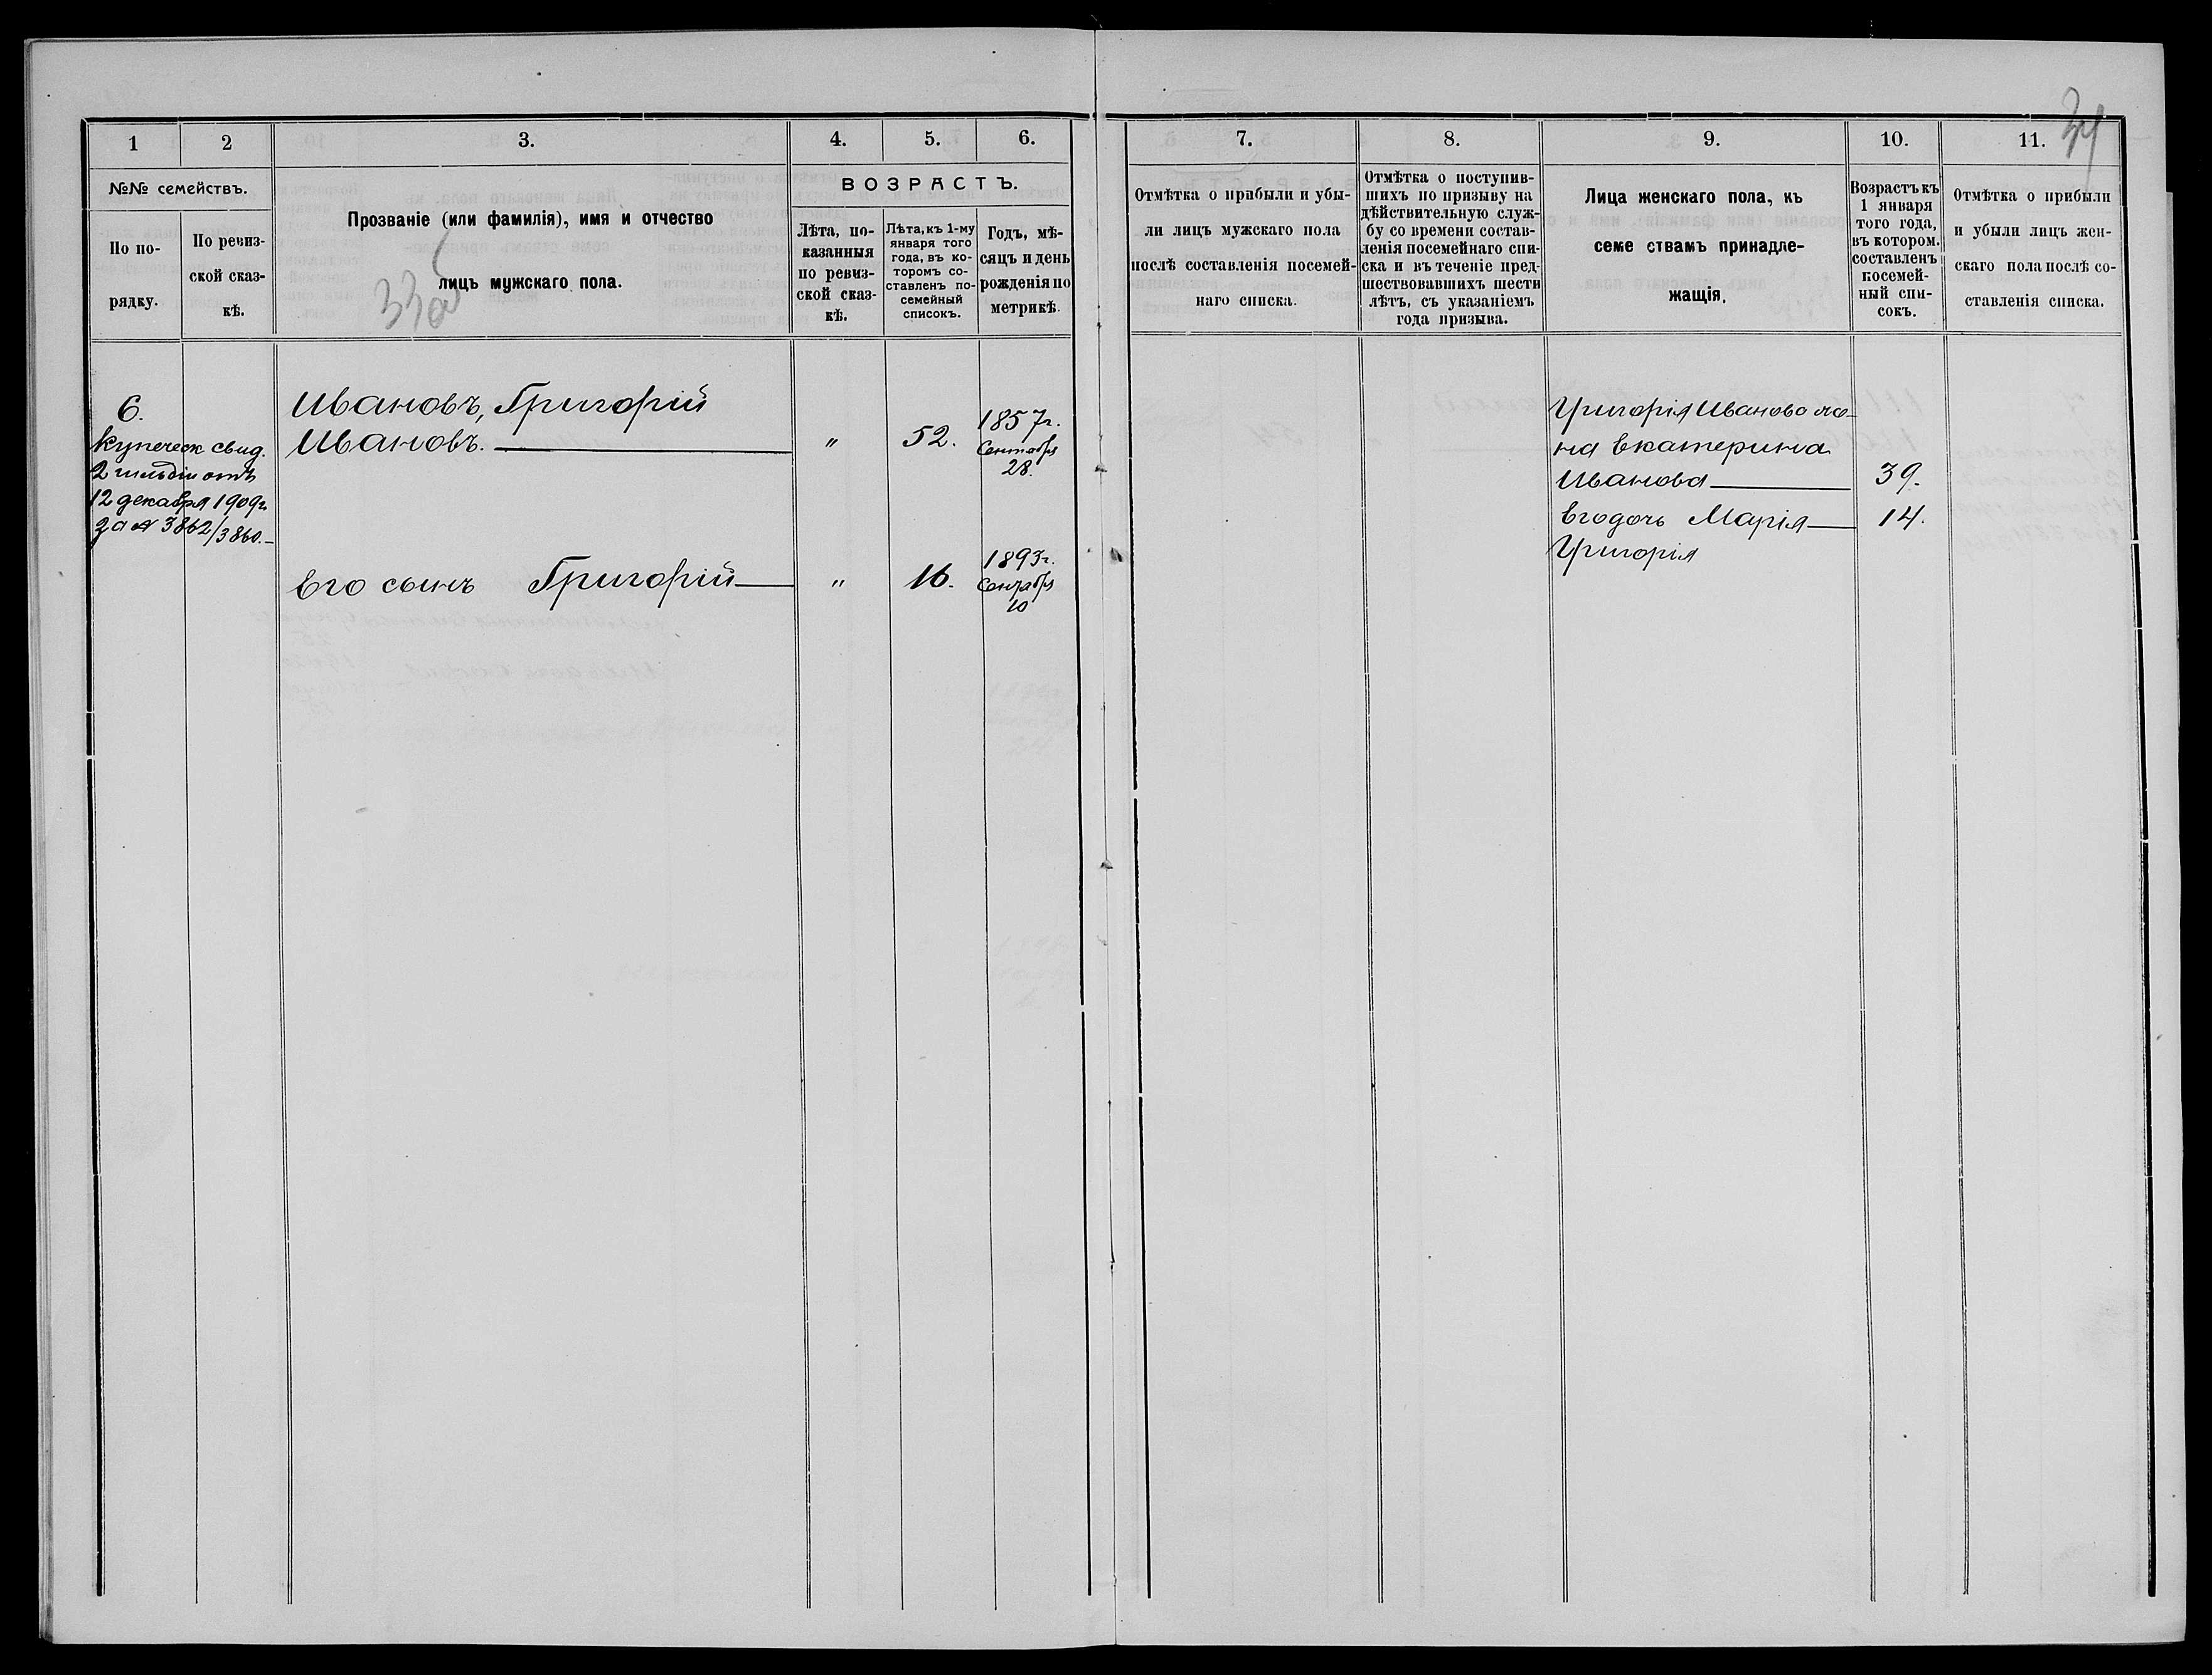 34
1
2
3.
4.
5.
6.
№№ семействъ.
По по-
рядку.
По ревиз-
ской сказ-
кѣ.
Прозваніе (или фамилія), имя и отчество
лицъ мужскаго пола.
33об
ВОЗРАСТЪ.
Лѣта, по-
казанныя
по ревиз-
ской сказ-
кѣ.
Лѣта, къ 1-му
января того
года, въ ко-
торомъ со-
ставленъ по-
семейный
списокъ.
Годъ, мѣ-
сяцъ и день
рожденія по
метрикѣ.
6.
Купеческ свид.
2 гильдіи отъ
12 декабря 1909г.
за № 3862/3860.-
Ивановъ, Григорій
Ивановъ.
"
52.
1857г.
Сентября
28.
Его сынъ Григорій
"
16.
1893г.
Сентября
10
7.
8.
9.
10.
11.
Отмѣтка о прибыли и убы-
ли лицъ мужскаго пола
послѣ составленія посемей-
наго списка.
Отмѣтка о поступив-
шихъ по призыву на
дѣйствительную служ-
бу со времени состав-
ленія посемейнаго спи-
ска и въ теченіе пред-
шествовавшихъ шести
лѣтъ, съ указаніемъ
года призыва.
Лица женскаго пола, къ
семе ствамъ принадле-
жащія.
Возрастъ къ
1 января
того года,
въ котором.
составленъ
посемей-
ный спи-
сокъ.
Отмѣтка о прибыли
и убыли лицъ жен-
скаго пола послѣ со-
ставленія списка.
Григорія Иванова же-
на Екатерина
Иванова 39.
Его дочь Марія 14.
Григорія